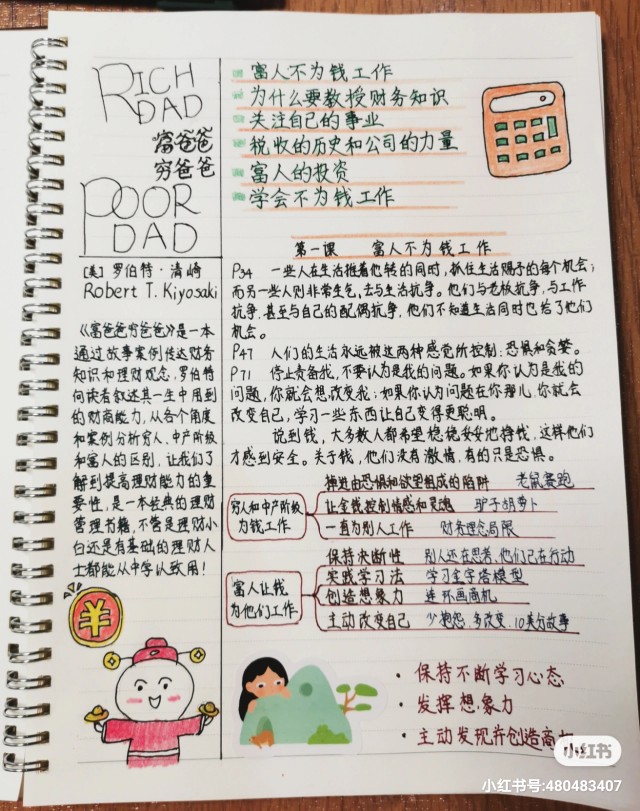 RICH
DAD
富爸爸
穷爸爸
POOR
DAD
[美] 罗伯特·清崎
Robert T. Kiyosaki
《富爸爸穷爸爸》是一本
通过故事案例传达财务
知识和理财观念,罗伯特
向读者叙述其一生中用到
的财商能力,从各个角度
和案例分析穷人、中产阶级
和富人的区别,让我们了
解到提高理财能力的重
要性,是一本经典的理财
管理书籍,不管是理财小
白还是有基础的理财人
士都能从中学以致用!
富人不为钱工作
为什么要教授财务知识
关注自己的事业
税收的历史和公司的力量
富人的投资
学会不为钱工作
第一课 富人不为钱工作
P34 一些人在生活推着他转的同时,抓住生活赐予的每个机会;
而另一些人则非常生气,去与生活抗争。他们与老板抗争,与工作
抗争,甚至与自己的配偶抗争,他们不知道生活同时也给了他们
机会。
P47 人们的生活永远被这两种感觉所控制:恐惧和贪婪。
P71 停止责备我,不要认为是我的问题。如果你认为是我的
问题,你就会想改变我;如果你认为问题在你那儿,你就会
改变自己,学习一些东西让自己变得更聪明。
说到钱,大多数人都希望稳稳妥妥地挣钱,这样他们
才感到安全。关于钱,他们没有激情,有的只是恐惧。
穷人和中产阶级
为钱工作
掉进由恐惧和欲望组成的陷阱 老鼠赛跑
让金钱控制情感和灵魂 驴子胡萝卜
一直为别人工作 财务理念局限
富人让钱
为他们工作
保持决断性 别人还在思考,他们已在行动
实践学习法 学习金字塔模型
创造想象力 连环画商机
主动改变自己 少抱怨,多改变,10美分故事
¥
· 保持不断学习心态
· 发挥想象力
· 主动发现并创造商
小红书
小红书号:480483407